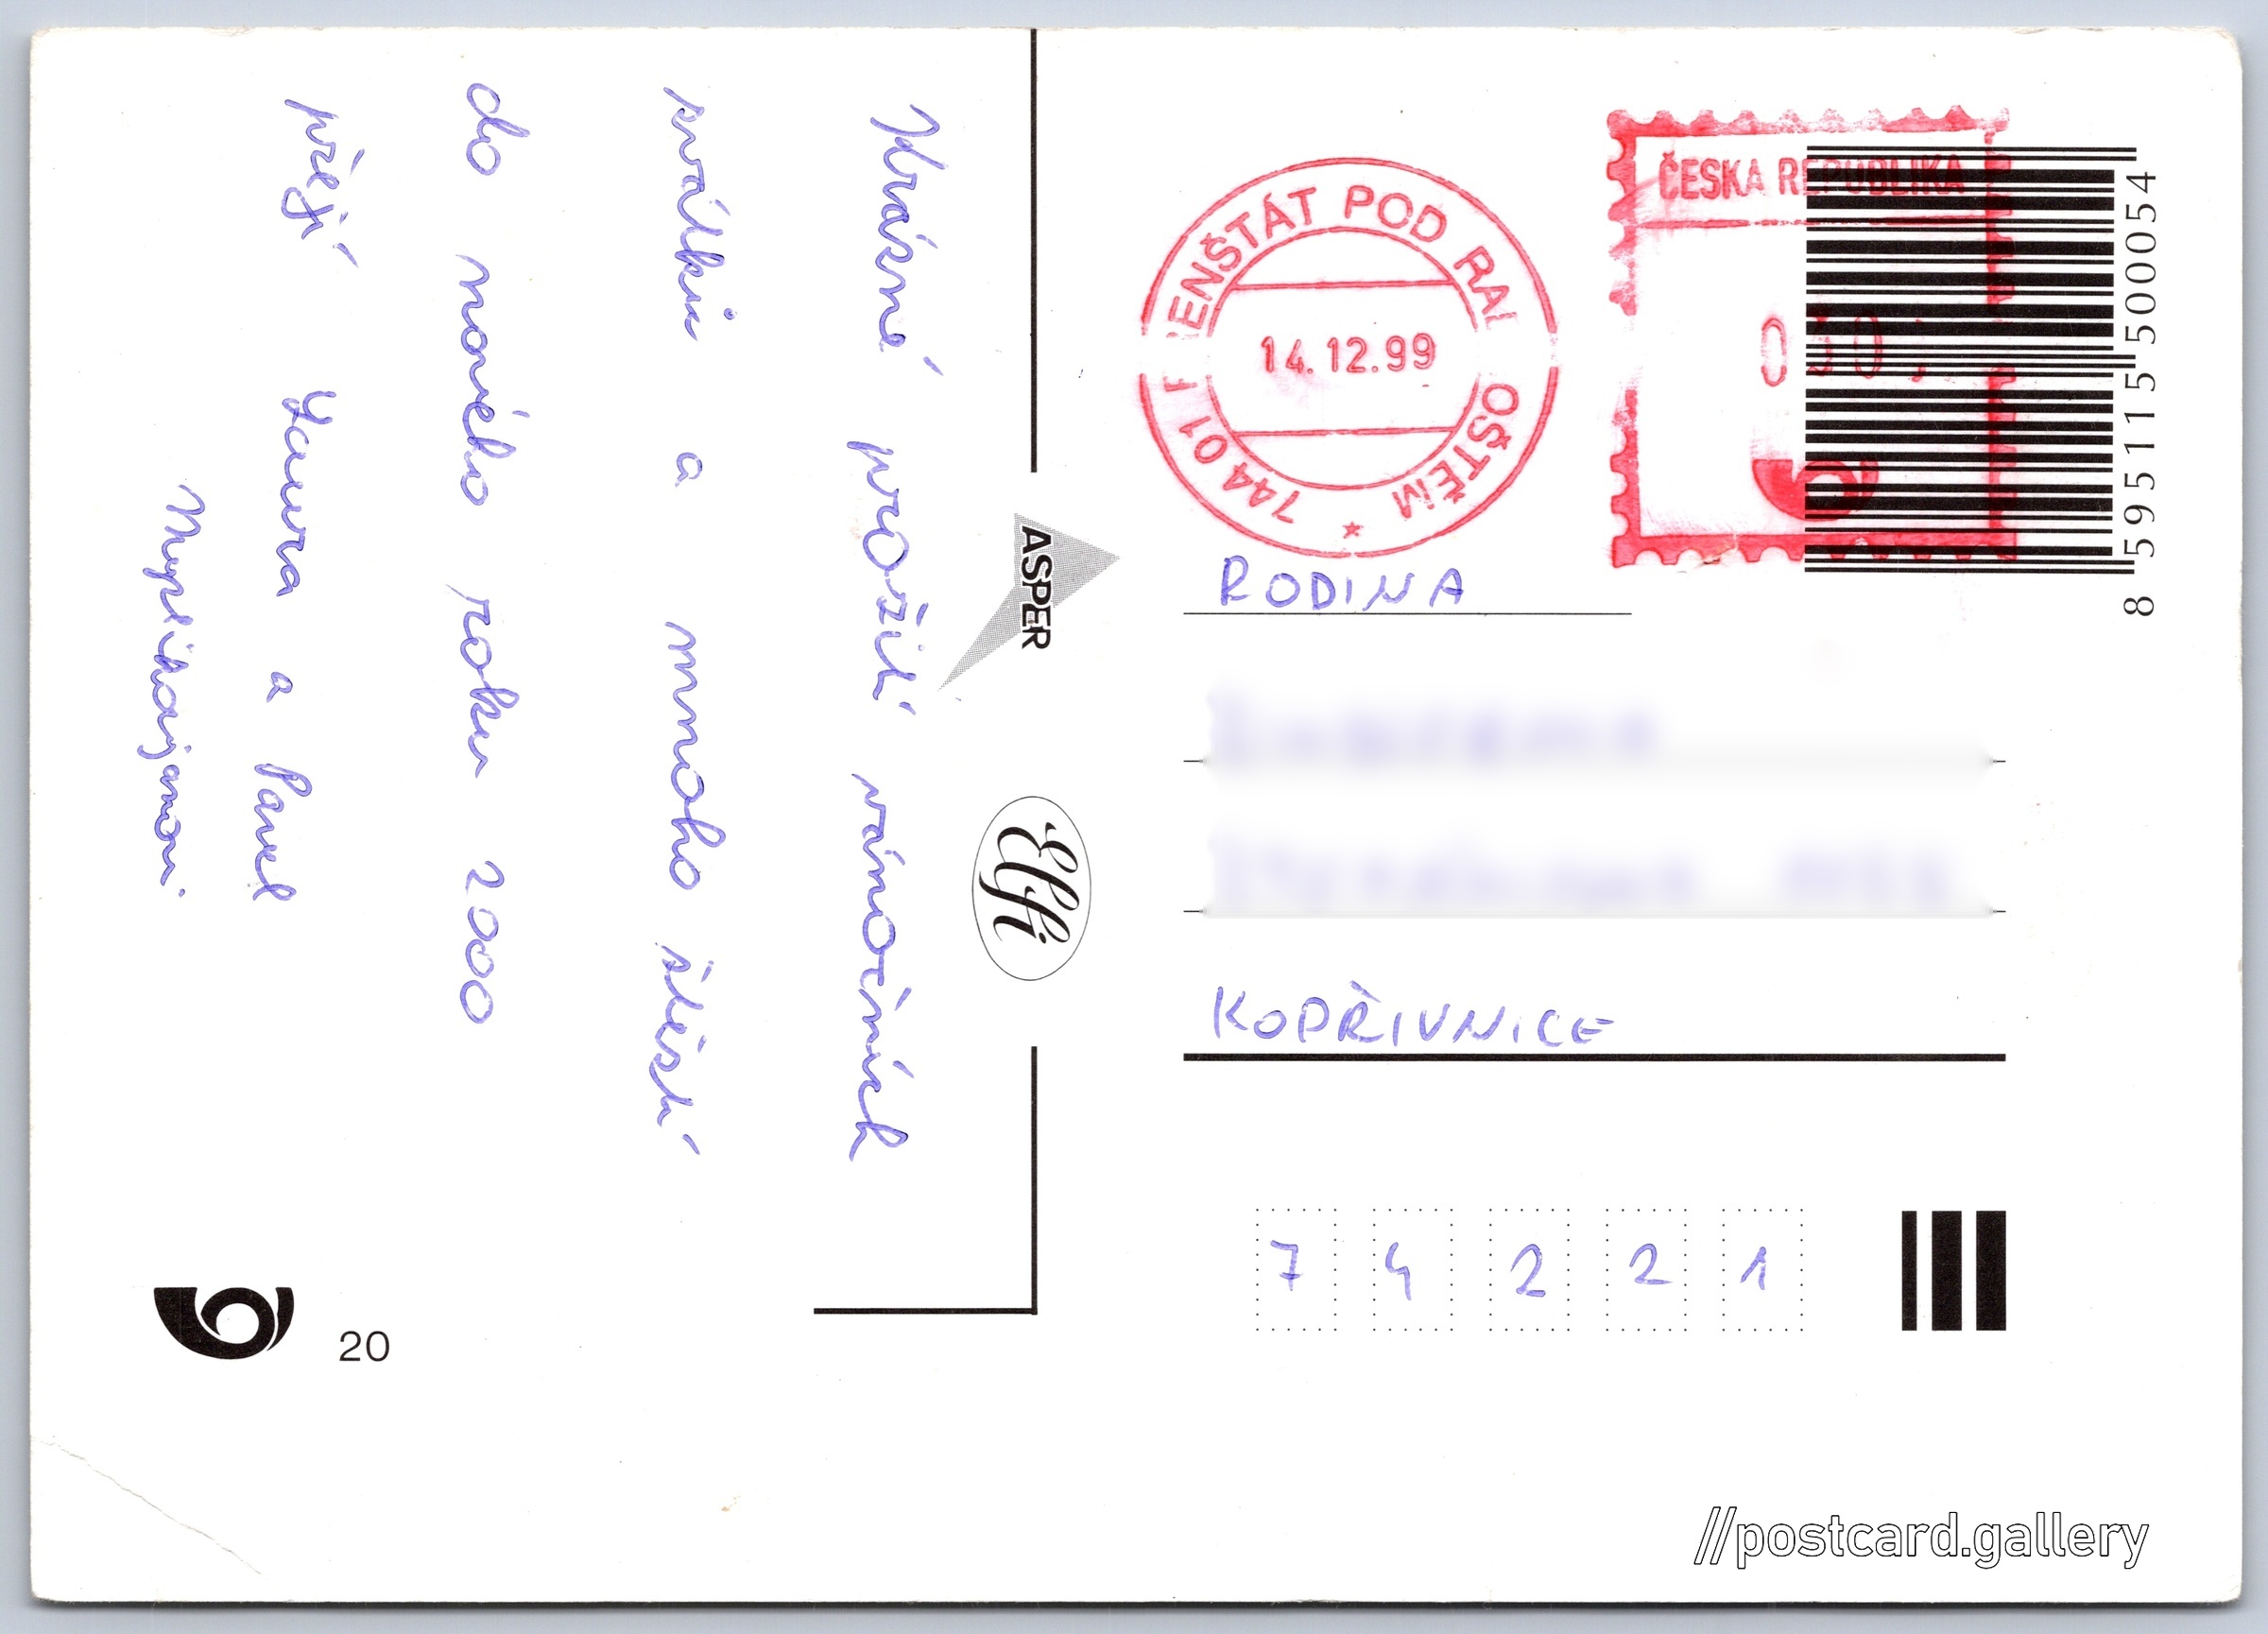 Krásné prožití vánočních
svátků a mnoho štěstí
do nového roku 2000
přejí Yawra a Pavel
ASPER
Elfi
20
ENŠTÁT POD RA OŠTĚM
744 01
14.12.99
ČESKÁ REPUBLIKA
8 595115 500054
RODINA
KOPŘIVNICE
7 4 2 2 1
//postcard.gallery